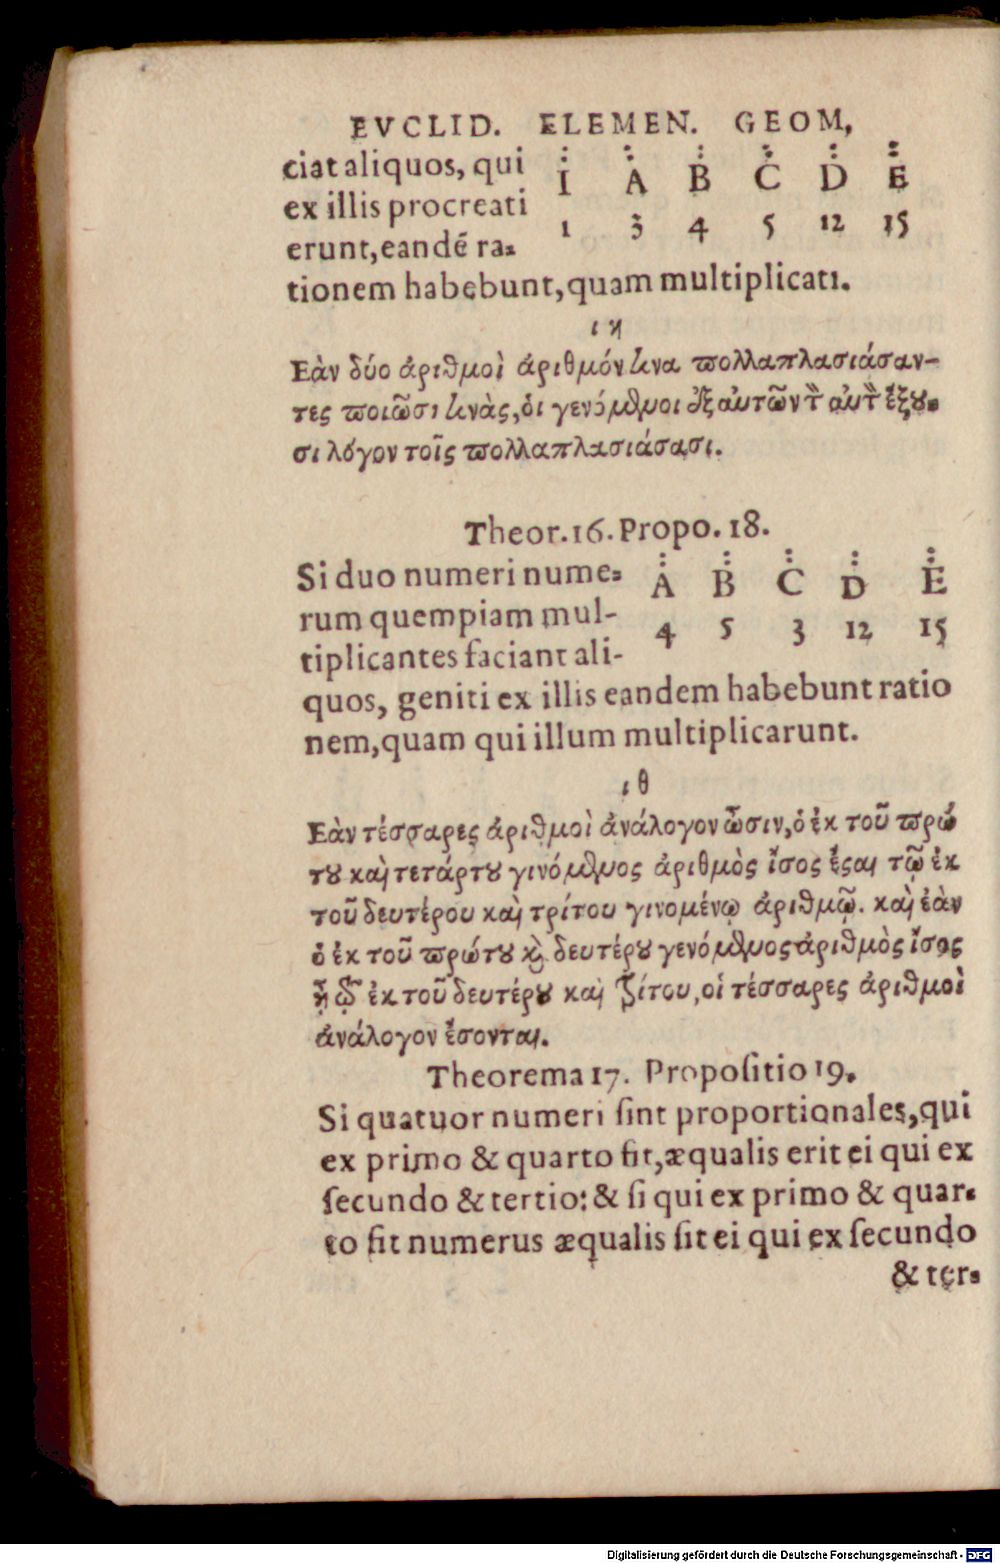 EVCLID. ELEMEN. GEOM,
ciat aliquos, qui
ex illis procreati
erunt, eandē ra-
I A B C D E
1 3 4 5 12 15
tionem habebunt, quam multiplicati.
ιη
Εὰν δύο ἀριθμοὶ ἀριθμόν τινα πολλαπλασιάσαν-
τες ποιῶσι τινὰς, ὁι γενόμενοι ἐξ αὐτῶν τ αὐτ ἕξου-
σι λόγον τοῖς πολλαπλασιάσασι.
Theor. 16. Propo. 18.
Si duo numeri nume-
rum quempiam mul-
tiplicantes faciant ali-
A B C D E
4 5 3 12 15
quos, geniti ex illis eandem habebunt ratio
nem, quam qui illum multiplicarunt.
ιθ
Εὰν τέσσαρες ἀριθμοὶ ἀνάλογον ὦσιν, ὁ ἐκ τοῦ πρώ
του καὶ τετάρτου γινόμενος ἀριθμὸς ἴσος ἔσται τῷ ἐκ
τοῦ δευτέρου καὶ τρίτου γινομένῳ ἀριθμῷ. καὶ ἐὰν
ὁ ἐκ τοῦ πρώτου καὶ δευτέρου γενόμενος ἀριθμὸς ἴσος
ᾖ τῷ ἐκ τοῦ δευτέρου καὶ τρίτου, οἱ τέσσαρες ἀριθμοὶ
ἀνάλογον ἔσονται.
Theorema 17. Propositio 19.
Si quatuor numeri sint proportionales, qui
ex primo & quarto fit, æqualis erit ei qui ex
secundo & tertio: & si qui ex primo & quar-
to fit numerus æqualis sit ei qui ex secundo
& ter-
Digitalisierung gefördert durch die Deutsche Forschungsgemeinschaft - DFG